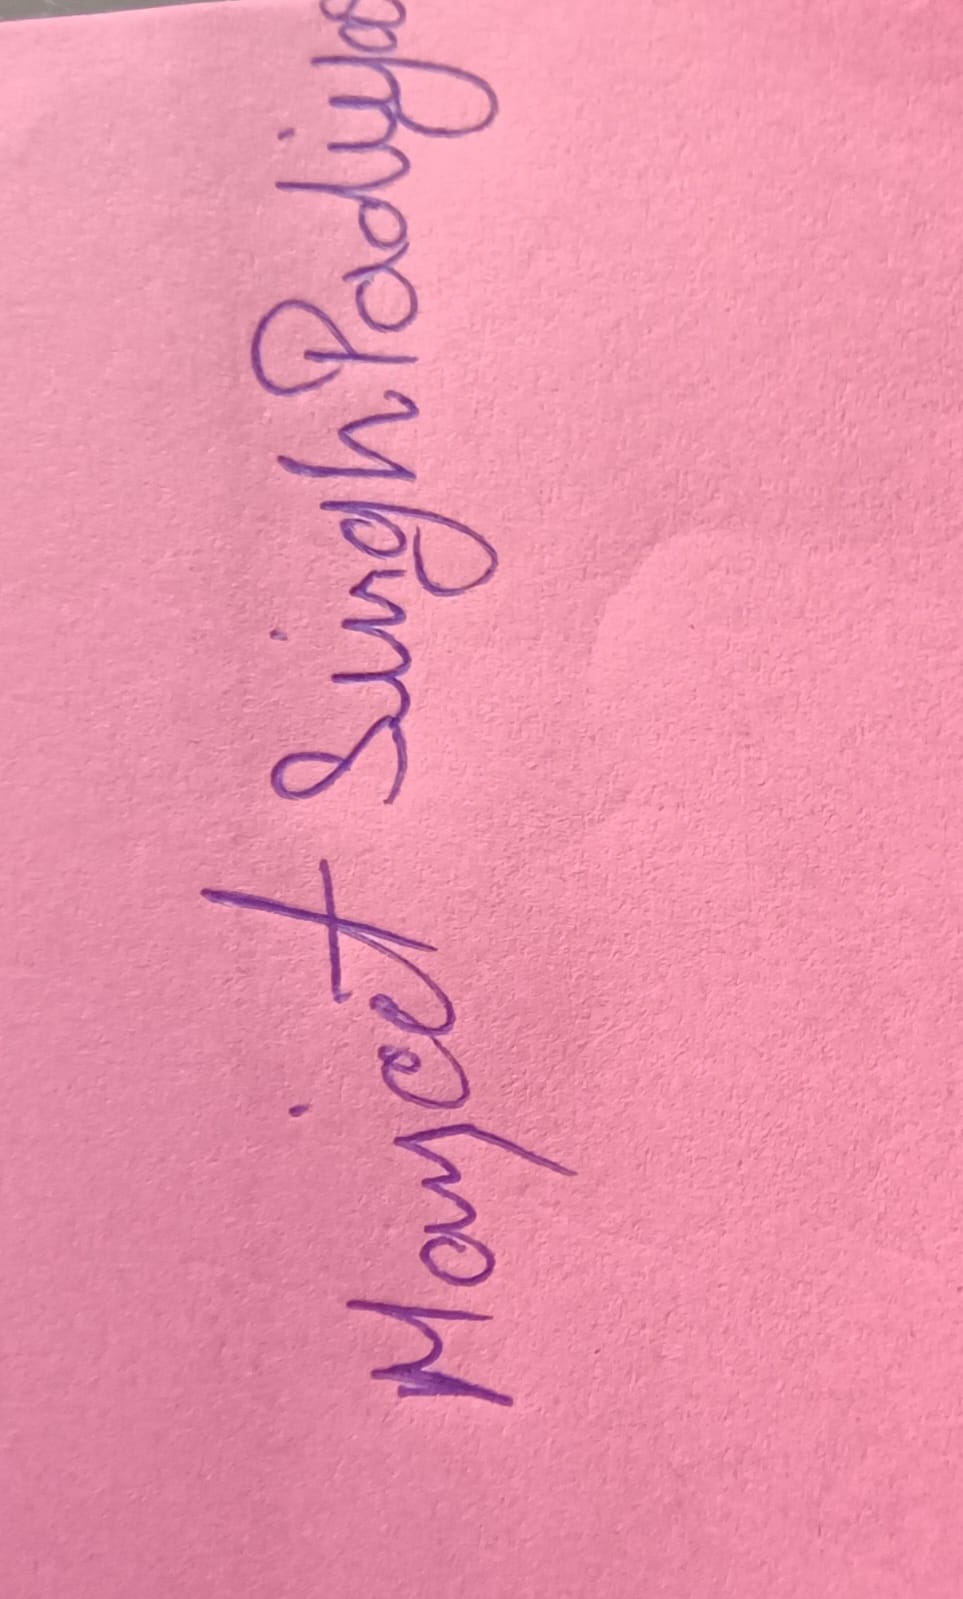 Manjeet Singh Padiya